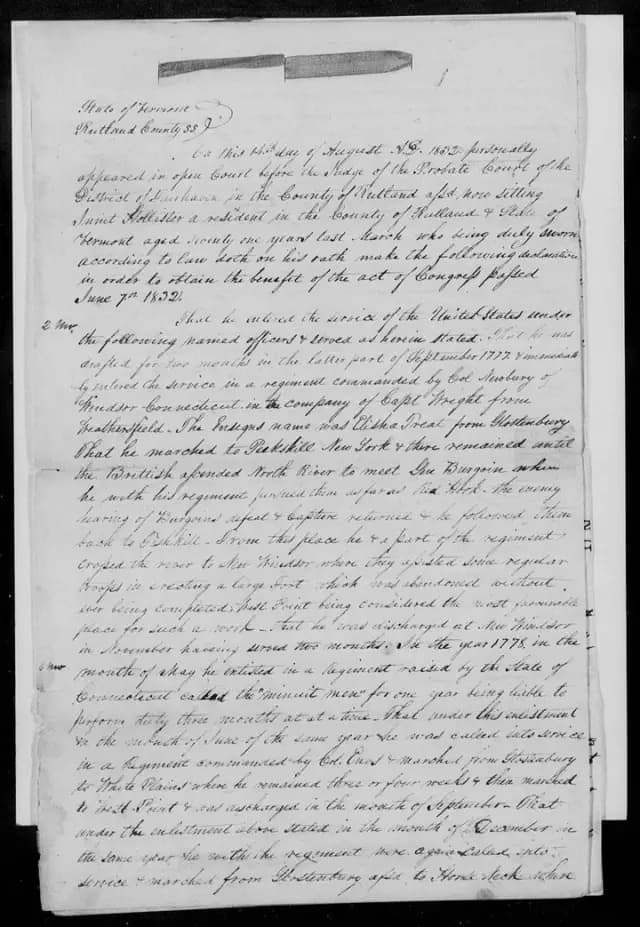 State of Vermont
Rutland County SS
On this day of August A.D. 1832 personally
appeared in open Court before the Judge of the Probate Court of the
District of Fairhaven in the County of Rutland afsd, now sitting
Hollister a resident in the County of Rutland & State of
Vermont aged seventy one years last March who being duly sworn
according to law doth on his oath make the following declaration
in order to obtain the benefit of the act of Congress passed
June 7th 1832.
2 Mo. That he entered the service of the United States under
the following named officers & served as herein stated. That he was
drafted for two months in the latter part of September 1777 & immediate
ly entered the service in a regiment commanded by Col Newbury of
Windsor Connecticut in the company of Capt Wright from
Weathersfield - The Ensigns name was Elisha Treat from Glostenbury
That he marched to Peekskill New York & there remained until
the British assended North River to meet Gen Burgoin when
he with his regiment pursued them as far as Red Hook - the enemy
hearing of Burgoins defeat & Capture returned & he followed them
back to - From this place he & a part of the regiment
crossed the river to New Windsor where they assisted some regular
troops in erecting a large Fort which was abandoned without
ever being completed West Point being considered the most favourable
place for such a work - that he was discharged at New Windsor
in November haveing served two months. In the year 1778 in the
month of May he enlisted in a Regiment raised by the State of
Connecticut called the "minuit men" for one year being liable to
perform duty three months at at a time - That under this enlistment
& in the month of June of the same year he was called into service
in a Regiment commanded by Col. Enos & marched from Glostenbury
to White Plains where he remained three or four weeks & then marched
to West Point & was discharged in the month of September - That
under the enlistment above stated in the month of December in
the same year he with the regiment were again called into
service & marched from Glostenbury afsd to Horse Neck where